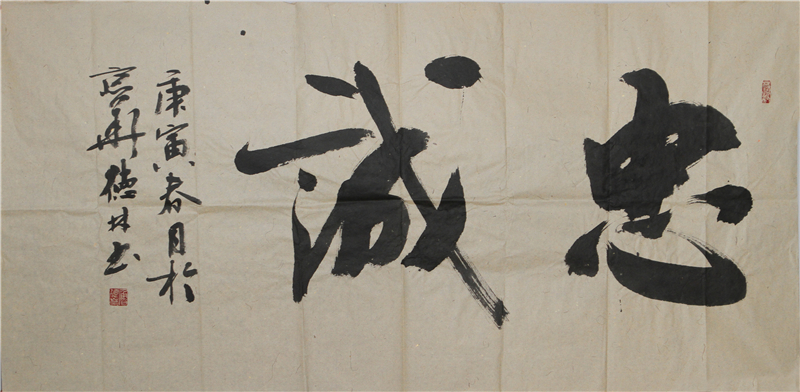 忠诚
庚寅春月於
京德林书